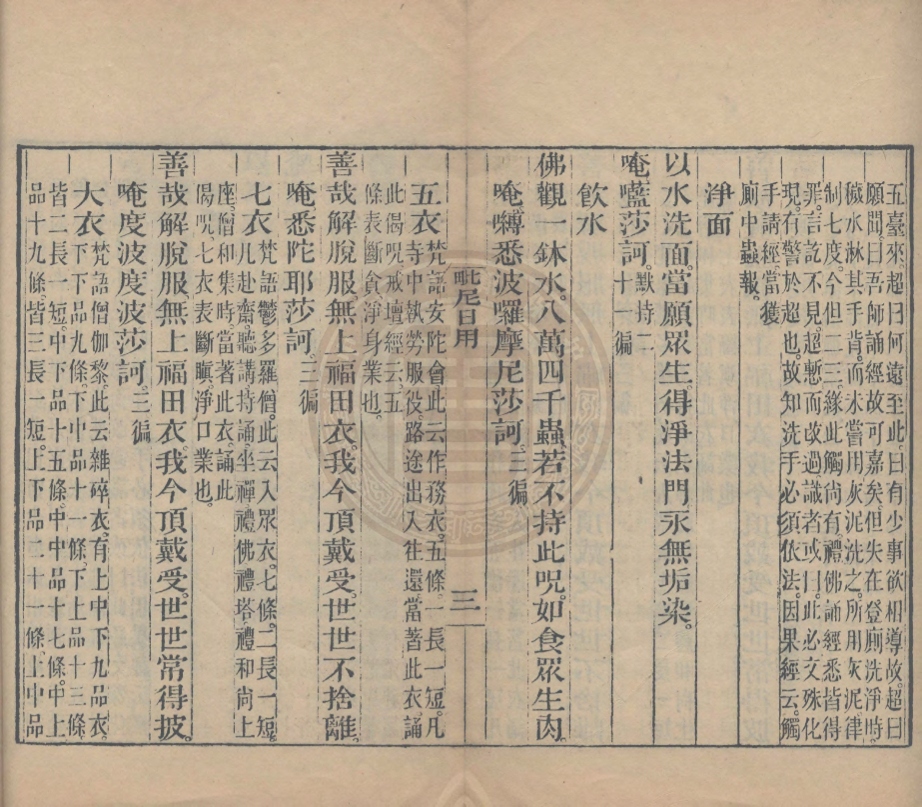 五臺來。超曰何遠至此。曰有少事欲相導故。超曰
願聞曰吾師誦經故可嘉矣。但失在登廁洗淨時。
穢水淋其手背。而未嘗用灰泥洗之。所用灰泥律
制七度。今但二三。緣此觸尚有禮佛誦經悉皆得
罪。言訖不見。超慙而改過識者或曰此必文殊化
現。有警於超也。故知洗手必須依法。因果經云。觸
手請經。當獲
廁中蟲報。
淨面
以水洗面。當願眾生。得淨法門。永無垢染。
唵㘕莎訶。默持二十一徧
飲水
佛觀一鉢水。八萬四千蟲。若不持此呪。如食眾生肉。
唵嚩悉波囉摩尼莎訶。三徧
毗尼日用
三
五衣梵語安陀會。此云作務衣。五條。一長一短。凡
寺中執勞服役。路途出入往還。當著此衣。誦
此偈呪。戒壇經云。五
條表斷貪。淨身業也。
善哉解脫服。無上福田衣。我今頂戴受。世世不捨離。
唵悉陀耶莎訶。三徧
七衣梵語鬱多羅僧。此云入眾衣。七條。二長一短。
凡赴齋。聽講。持誦坐禪。禮佛禮塔。禮和尚上
座。僧和集時。當著此衣。誦此
偈呪。七衣表斷瞋。淨口業也。
善哉解脫服。無上福田衣。我今頂戴受。世世常得披。
唵度波度波莎訶。三徧
大衣梵語僧伽黎。此云雜碎衣。有上中下九品衣。
下下品九條。下中品十一條。下上品十三條。
皆二長一短。中下品十五條。中中品十七條。中上
品十九條。皆三長一短。上下品二十一條。上中品